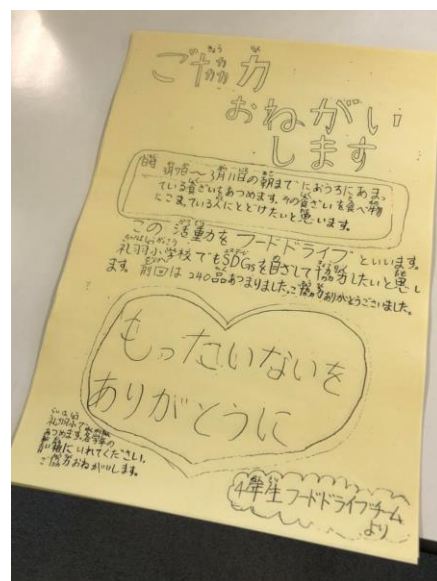 ご協力
おねがい
します
3月11日の朝までにおうちにあまっ
ている食ざいをあつめます。その食ざいを食べ物
にこまっている人にとどけたいと思います。
この活動をフードドライブといいます。
礼羽小学校でもSDGsを目ざして協力したいと思い
ます。前回は240品あつまりました。ご協力ありがとうございました。
もったいないを
ありがとうに
礼羽小で
あつめます。各学年の
箱にいれてください。
ご協力おねがいします。
4年生フードドライブチーム
より